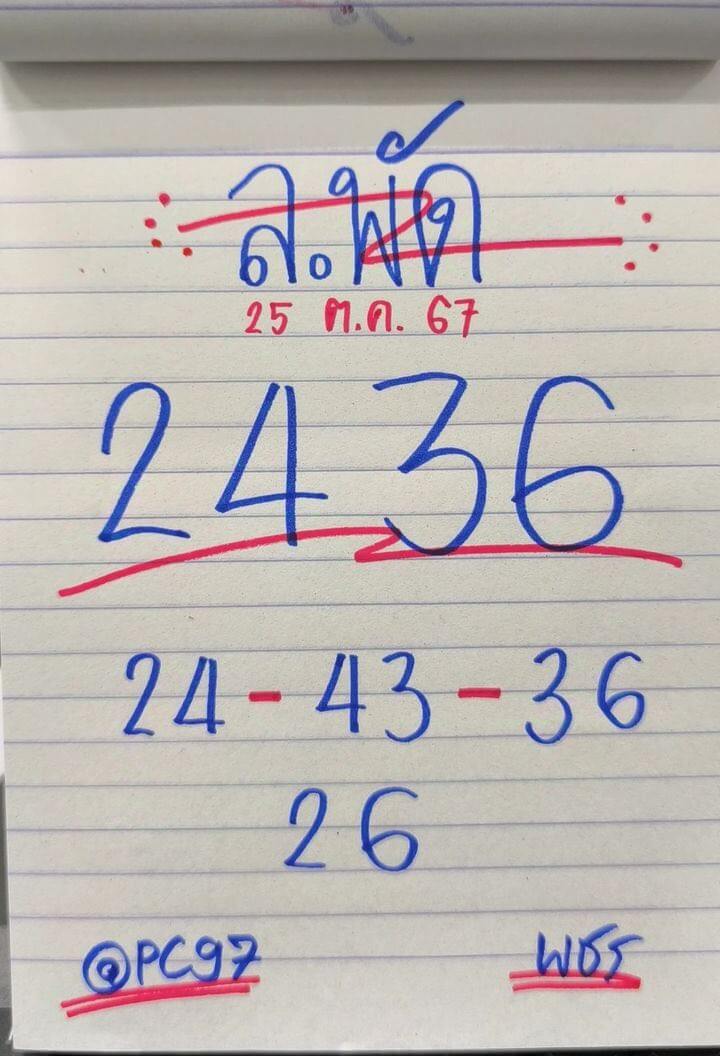 ล.พัด
25 ต.ค. 67
2436
24-43-36
26
@PC97 พชร